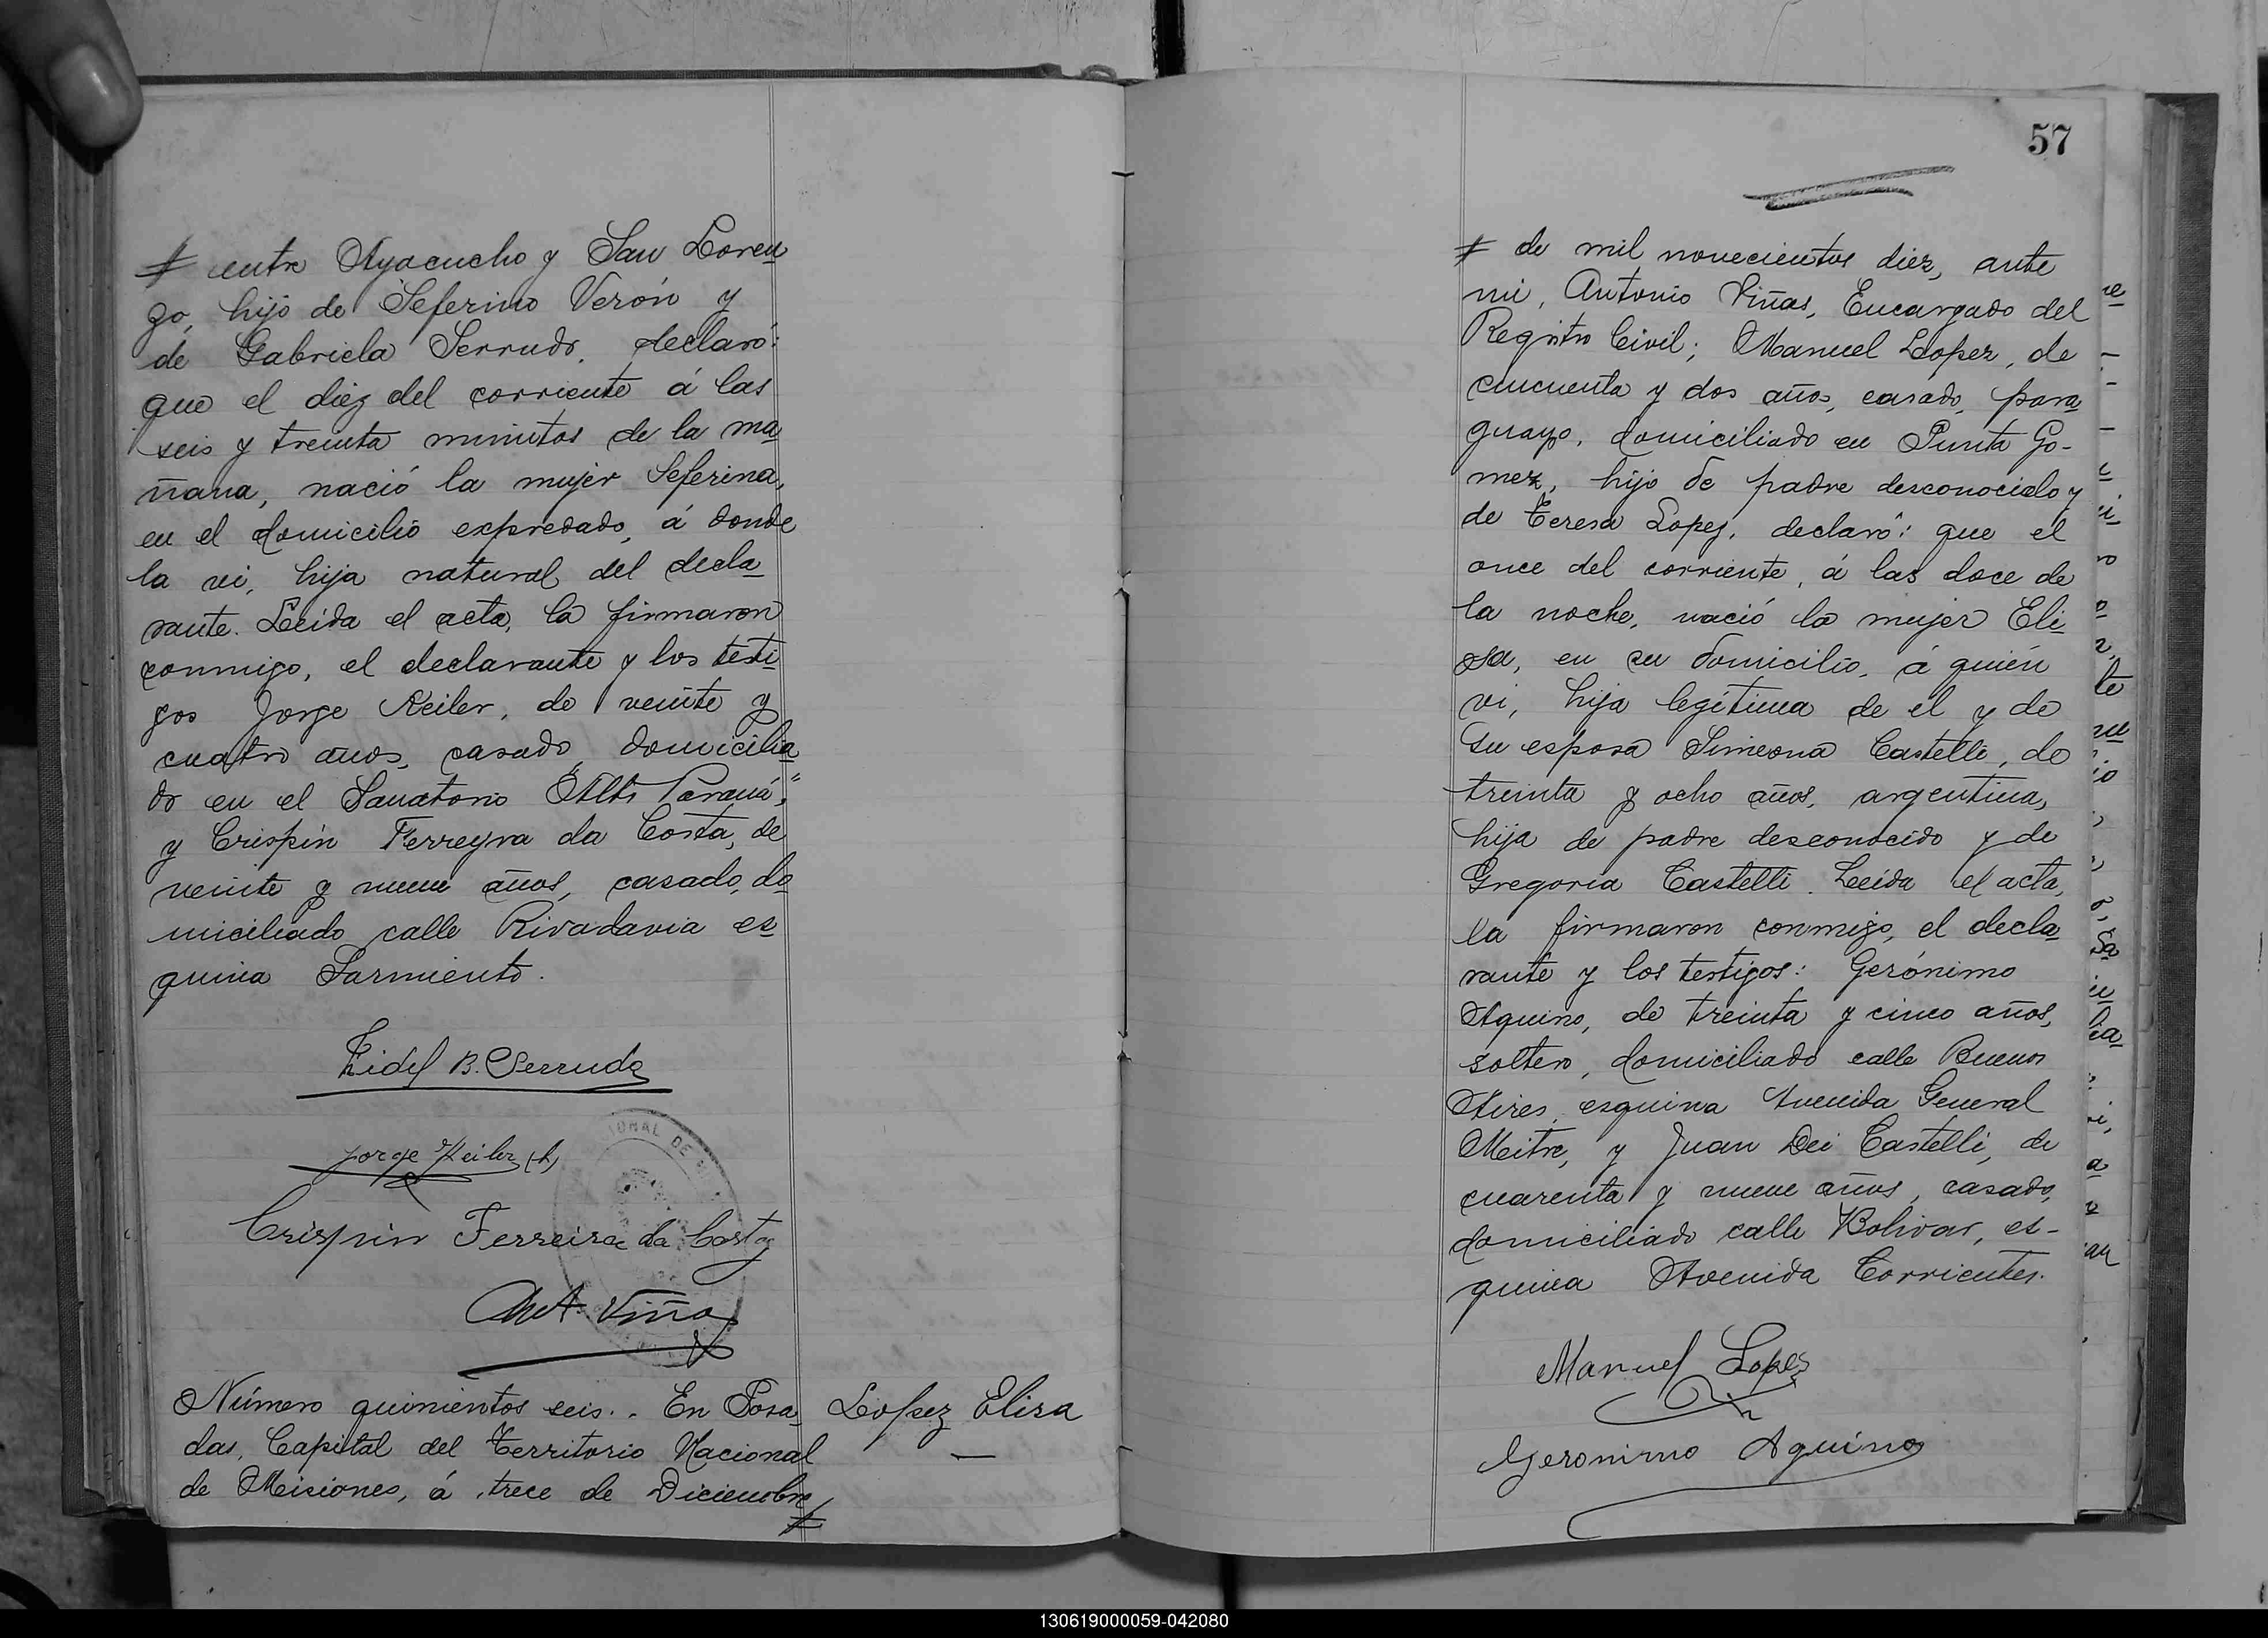 # entre Ayacucho y San Loren
zo, hijo de Seferino Verón y
de Gabriela Serrudo, declaró:
que el diez del corriente á las
seis y treinta minutos de la ma
ñana, nació la mujer Seferina,
en el domicilio expresado, á donde
la vi, hija natural del decla
rante. Leida el acta, la firmaron
conmigo, el declarante y los testi
gos Jorge Keiler, de veinte y
cuatro años, casado, domicilia
do en el Sanatorio "Alto Paraná",
y Crispín Ferreyra da Costa, de
veinte y nueve años, casado, do
miciliado calle Rivadavia es
quina Sarmiento.
Fidel B. Serrudo
Jorge Keiler (h)
Crispin Ferreira da Costa
Ant. Viñas
Número quinientos seis.. En Posa
das, Capital del Territorio Nacional
de Misiones, á trece de Diciembre #
Lopez Elisa
57
# de mil novecientos diez, ante
mi, Antonio Viñas, Encargado del
Registro Civil; Manuel Lopez, de
cincuenta y dos años, casado, para
guayo, domiciliado en Punta Go-
mez, hijo de padre desconocido y
de Teresa Lopez, declaró: que el
once del corriente, á las doce de
la noche, nació la mujer Eli
sa, en su domicilio, á quién
vi, hija legítima de el y de
su esposa Simeona Castelli, de
treinta y ocho años, argentina,
hija de padre desconocido y de
Gregoria Castelli. Leida el acta,
la firmaron conmigo, el decla
rante y los testigos: Gerónimo
Aquino, de treinta y cinco años,
soltero, domiciliado calle Buenos
Aires esquina Avenida General
Mitre, y Juan Dei Castelli, de
cuarenta y nueve años, casado,
domiciliado calle Bolivar, es-
quina Avenida Corrientes.
Manuel Lopez
Geronimo Aquino
130619000059-042080